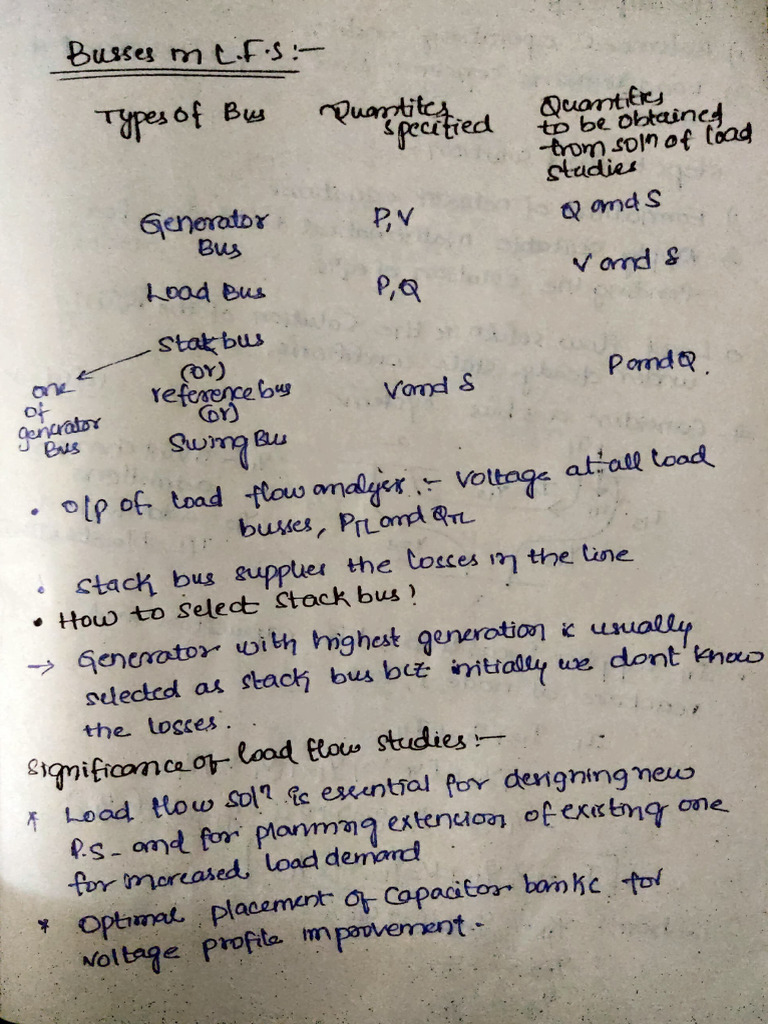 Busses in L.F.S :-
Types of Bus Quantites specified Quantities to be obtained from soln of load studies
Generator Bus P,V Q and S
Load Bus P,Q V and S
Stak bus (or) reference bus (or) Swing Bus V and S P and Q.
one of generator Bus
• O/p of load flow analysis :- Voltage at all load
busses, PTL and QTL
• Stack bus supplies the losses in the line
• How to select stack bus?
→ Generator with highest generation is usually
selected as stack bus bcz initially we dont know
the losses.
Significance of load flow studies :-
* Load flow soln is essential for designing new
P.S. and for planning extension of existing one
for increased load demand
* Optimal placement of capacitor banks for
voltage profile improvement.